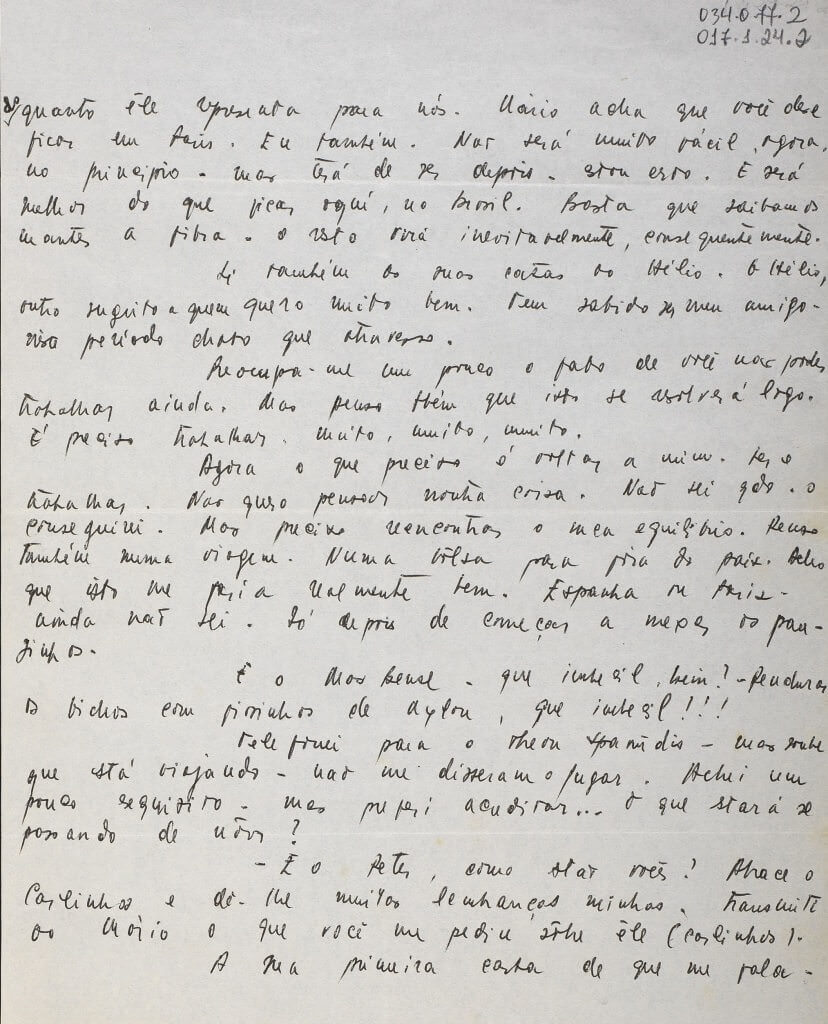 034.0.77.2
017.1.24.2
quanto êle representa para nós. Mário acha que você deve
ficar em Paris. Eu também. Não será muito fácil, agora,
no princípio - mas terá de ser depois - estou certo. E será
melhor do que ficar aqui, no Brasil. Basta que saibamos
manter a fibra - e isto virá inevitavelmente, consequentemente.
Li também as suas cartas ao Hélio. O Hélio,
outro sujeito a quem quero muito bem. Tem sabido ser meu amigo -
nesse período chato que atravesso.
Preocupa-me um pouco o fato de você não poder
trabalhar ainda. Mas penso tbém que isto se resolverá logo.
É preciso trabalhar. Muito, muito, muito.
Agora o que preciso é voltar a mim. Ler e
trabalhar. Não quero pensar noutra coisa. Não sei qdo. o
conseguirei. Mas preciso reencontrar o meu equilíbrio. Penso
também numa viagem. Numa bolsa para fora do país. Acho
que isto me faria realmente bem. Espanha ou Paris -
ainda não sei. Só depois de começar a mexer os pau-
zinhos.
E o Max Bense - que imbecil, hein? - Pendurar
os bichos com fiozinhos de nylon, que imbecil!!!
Telefonei para o Theon Spanúdis - mas soube
que está viajando - não me disseram o lugar. Achei um
pouco esquisito - mas preferi acreditar... O que estará se
passando de nôvo?
- E o Peter, como estão vocês? Abrace o
Carlinhos e dê-lhe muitas lembranças minhas. Transmiti
ao Mário o que você me pediu sôbre êle (Carlinhos).
A sua primeira carta de que me fala -